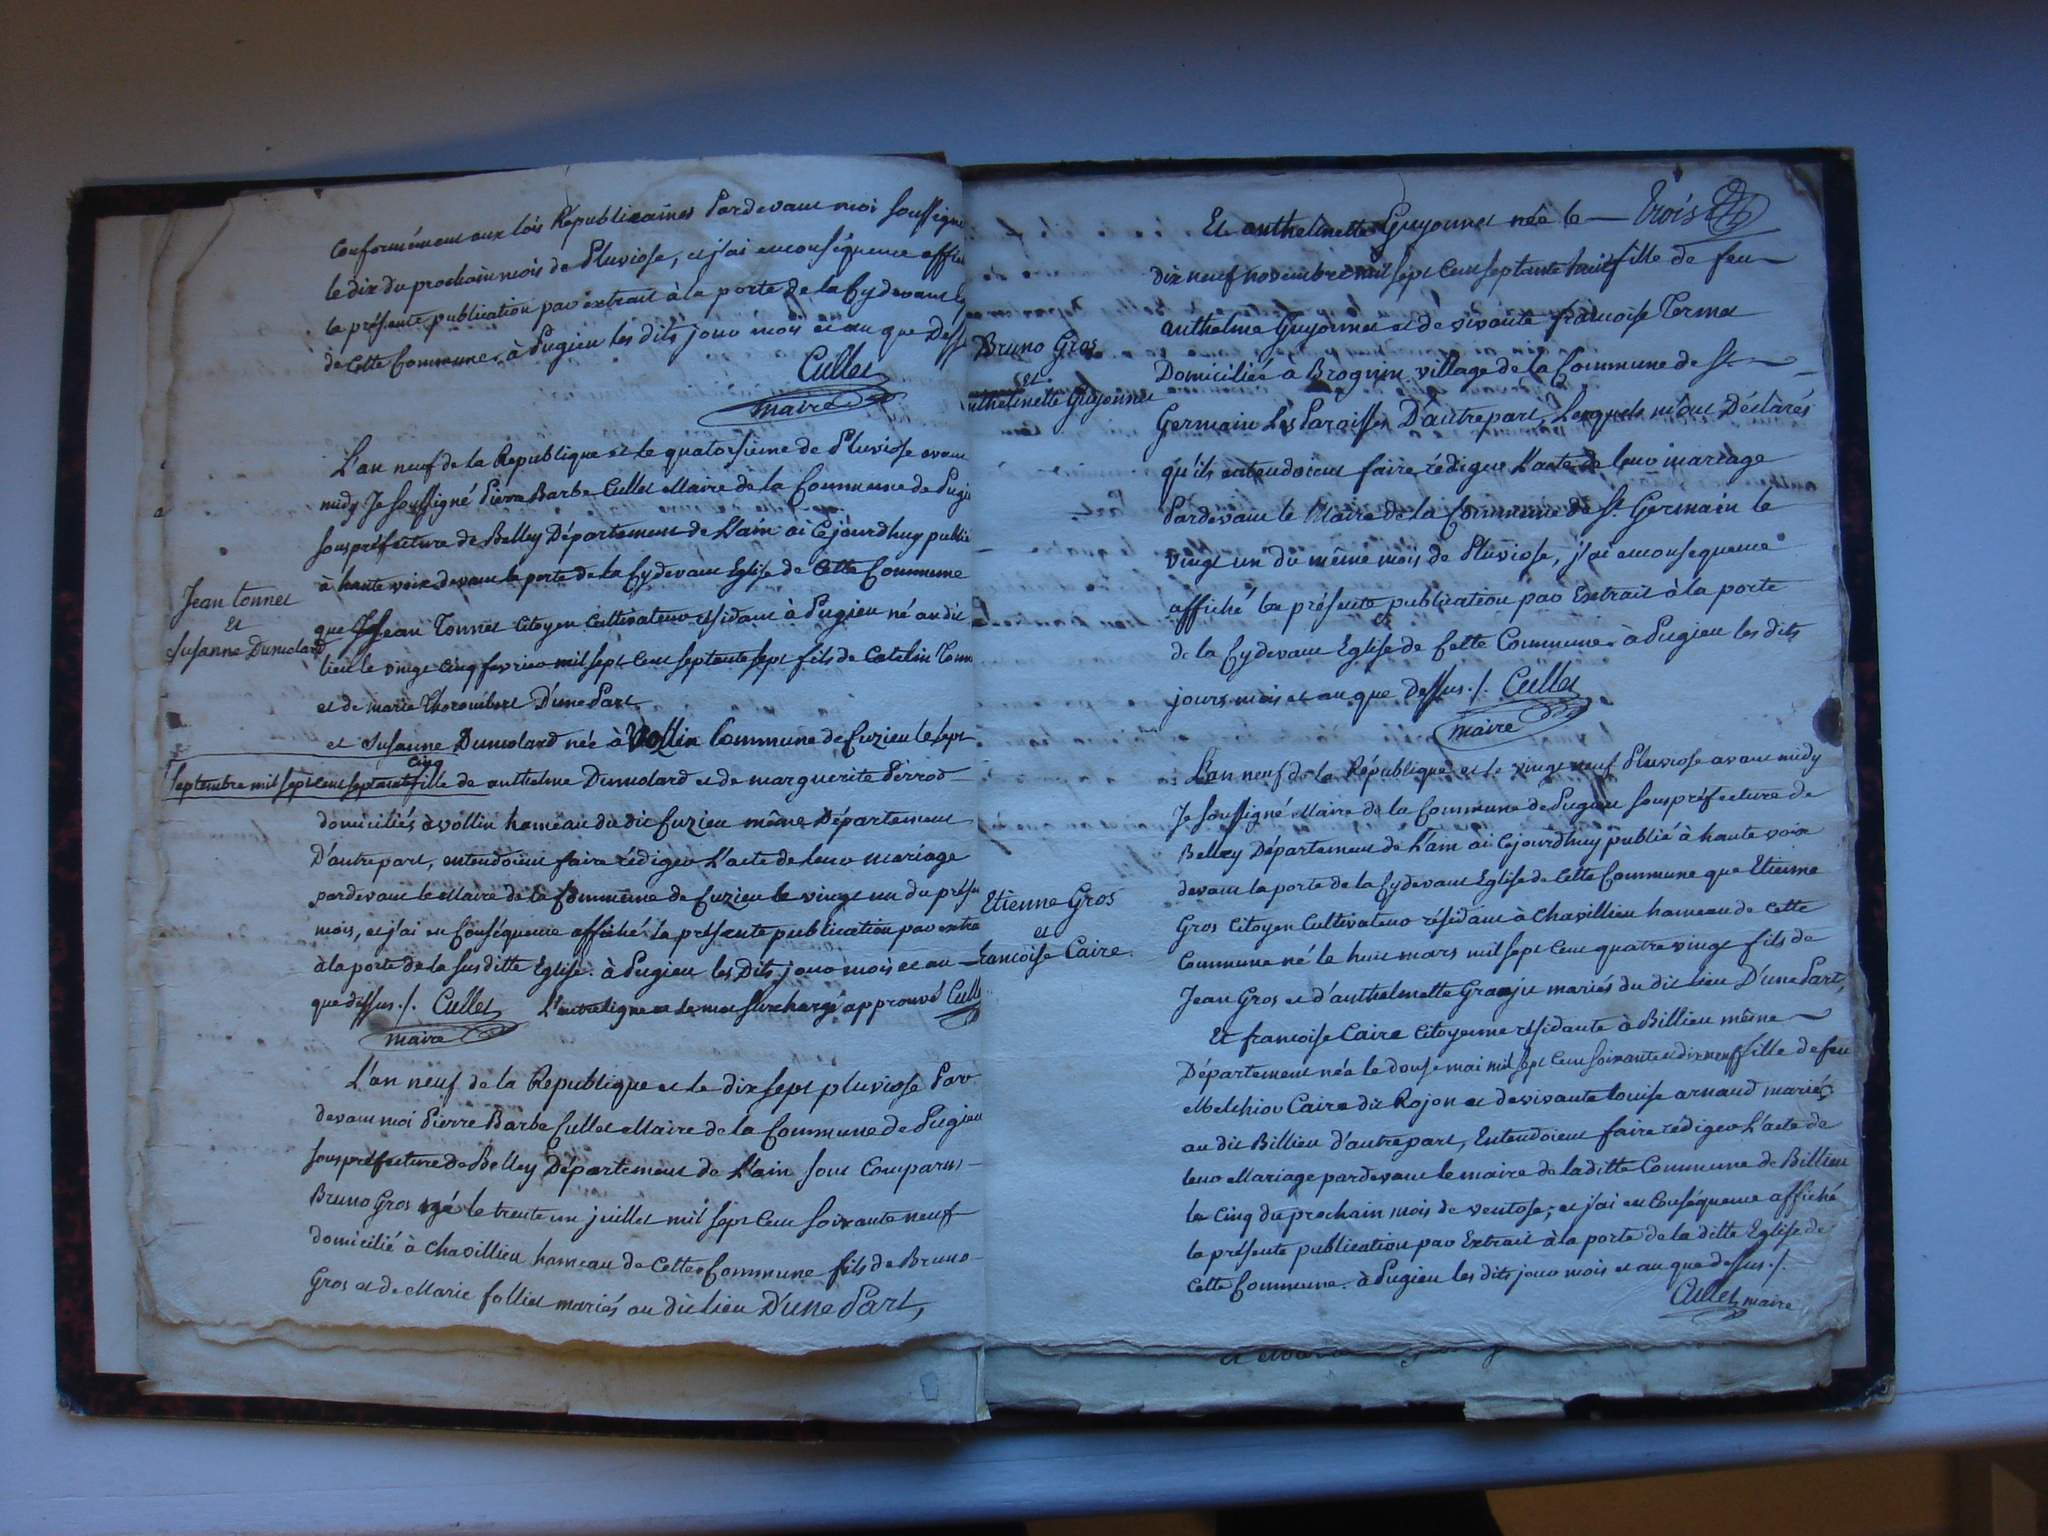 Conformément aux lois Républicaines Pardevant moi soussigné
le dix du prochain mois de Pluviose, et j'ai enconséquence affi
la présente publication par extrait à la porte de la Cydevant
de Cette Commune. à Pugieu les dits jour mois et an que Dess
Cullet
maire
L'an neuf de la République et le quatorsieme de Pluviose avant
midy Je soussigné Pierre Barbe Cullet Maire de la Commune de Pugie
souspréfecture de Belley Département de L'ain ai Cejourdhuy publié
à haute voix devant la porte de la Cydevant Eglise de Cette Commune
Jean tonnet
et
Susanne Dumolard
que Jean Tonnet Citoyen Cultivateur résidant à Pugieu né audit
lieu le vingt Cinq fevrier mil sept Cent septente sept fils de Catelin Tonn
et de marie Thorombert D'une Part
et Susanne Dumolard née à Vollin Commune de Cuzieu le sept
cinq
septembre mil sept cent septante fille de anthelme Dumolard et de marguerite Perrod
domiciliés à vollin hameau du dit Cuzieu même Département
D'autrepart, entendoient faire rédiger L'acte de leur mariage
pardevant le Maire de la Commune de Cuzieu le vingt un du prése
mois, et j'ai en Conséquence affiché la présente publication par extra
à la porte de la susditte Eglise. à Pugieu les Dits jour mois et an
que dessus ./. Cullet L'entreligne et le mot surchargé approuvé Cull
maire
L'an neuf de la Republique et le dix sept pluviose Par
devant moi Pierre Barbe Cullet Maire de la Commune de Pugieu
souspréfecture de Belley Département de L'ain sont Comparus
Bruno Gros né le trente un juillet mil sept Cent soixante neuf
domicilié à Chavillieu hameau de Cette Commune fils de Bruno
Gros et de Marie folliet mariés au dit lieu D'une Part,
Trois
Et anthelmette Guyonnet née le
dix neuf novembre mil sept Cent septante huit fille de feu
anthelme Guyonnet et de vivante francoise Termet
Bruno Gros
et
nthelmette Guyonnet
Domiciliée a Brognin village de la Commune de St
Germain Les Paroisses D'autrepart, Lesquels m'ont Déclarés
qu'ils entendoient faire rédiger L'acte de leur mariage
Pardevant le Maire de la Commune de St. Germain le
vingt un du même mois de Pluviose, j'ai enconsequence
affiché la présente publication par Extrait à la porte
de la Cydevant Eglise de Cette Commune. à Pugieu les dits
jours mois et an que dessus ./. Cullet
maire
L'an neuf de la République et le vingt neuf Pluviose avant midy
Je soussigné Maire de la Commune de Pugieu souspréfecture de
Belley Département de L'ain ai Cejourdhuy publié à haute voix
devant la porte de la Cydevant Eglise de Cette Commune que Etienne
Etienne Gros
et
francoise Caire
Gros Citoyen Cultivateur résidant à Chavillieu hameau de Cette
Commune né le huit mars mil sept Cent quatre vingt fils de
Jean Gros et d'anthelmette Granju mariés du dit Lieu D'une Part,
Et francoise Caire Citoyenne résidante à Billieu même
Département née le douse mai mil sept Cent soixante et dix neuf fille de feu
Melchior Caire dit Rojon et de vivante louise arnaud mariés
au dit Billieu d'autrepart, Entendoient faire rédiger L'acte de
leur Mariage pardevant le maire de laditte Commune de Billieu
le Cinq du prochain mois de ventose; et j'ai en Conséquence affiché
la présente publication par Extrait à la porte de la ditte Eglise de
Cette Commune. à Pugieu les dits jour mois et an que dessus ./.
Cullet maire